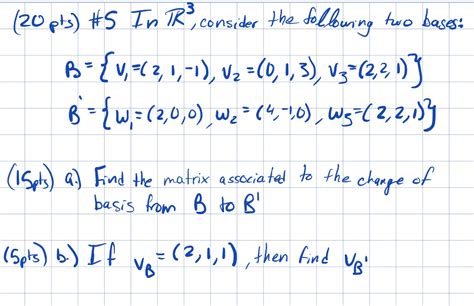 (20 pts) #5 In ℝ³, consider the following two bases:
B = { V₁=(2, 1, -1), V₂ = (0, 1, 3), V₃=(2,2, 1)}
B' = { W₁ = (2,0,0), W₂ = (4,-1,0), W₃=(2,2,1)}
(15pts) a.) Find the matrix associated to the change of
basis from B to B'
(5pts) b.) If V_B = (2,1,1), then find V_B'